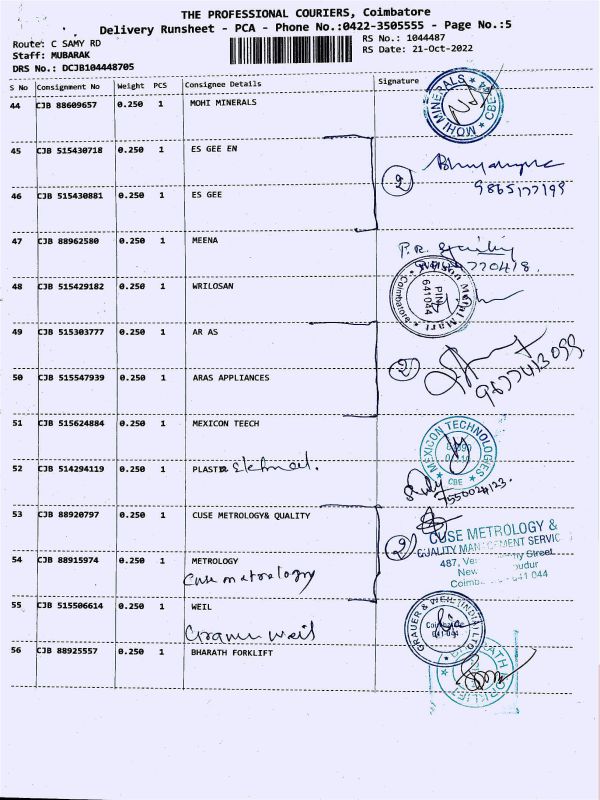 THE PROFESSIONAL COURIERS, Coimbatore
Delivery Runsheet - PCA - Phone No.:0422-3505555 - Page No.:5
Route: C SAMY RD
RS No.: 1044487
Staff: MUBARAK
RS Date: 21-Oct-2022
DRS No.: DCJB104448705
S No Consignment No Weight PCS Consignee Details Signature
44 CJB 88609657 0.250 1 MOHI MINERALS
MOHI MINERALS CBE
45 CJB 515430718 0.250 1 ES GEE EN
2
9865177199
46 CJB 515430881 0.250 1 ES GEE
47 CJB 88962580 0.250 1 MEENA
P.R.
48 CJB 515429182 0.250 1 WRILOSAN
Metal Mart Coimbatore
PIN
641044
49 CJB 515303777 0.250 1 AR AS
2
50 CJB 515547939 0.250 1 ARAS APPLIANCES
51 CJB 515624884 0.250 1 MEXICON TEECH
MEXICON TECHNOLOGIES
CBE
52 CJB 514294119 0.250 1
53 CJB 88920797 0.250 1 CUSE METROLOGY& QUALITY
2
CUSE METROLOGY &
QUALITY MANAGEMENT SERVIC
487, Street
Coimb 641 044
54 CJB 88915974 0.250 1 METROLOGY
Cuse metrology
55 CJB 515506614 0.250 1 WEIL
Grauer Weil
GRAUER & WEIL (INDIA) LTD.
Coimbatore
641 044
56 CJB 88925557 0.250 1 BHARATH FORKLIFT